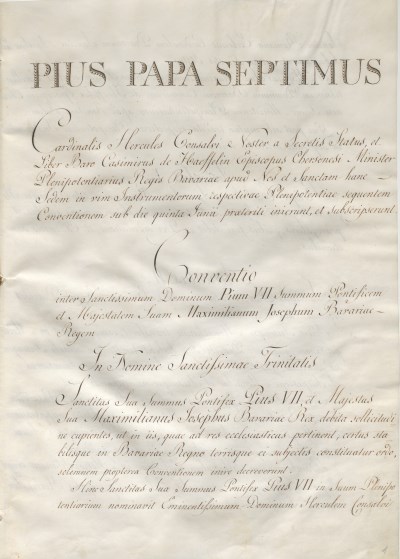 PIUS PAPA SEPTIMUS
Cardinalis Hercules Consalvi Noster a Secretis Status, et
Liber Baro Casimirus de Haeffelin Episcopus Chersonesi Minister
Plenipotentiarius Regis Bavariae apud Nos et Sanctam hanc
Sedem in vim Instrumentorum respectivae Plenipotentiae sequentem
Conventionem sub die quinta Junii praeteriti inierunt, et subscripserunt.
Conventio
inter Sanctissimum Dominum Pium VII Summum Pontificem
et Majestatem Suam Maximilianum Josephum Bavariae
Regem
In Nomine Sanctissimae Trinitatis
Sanctitas Sua Summus Pontifex Pius VII, et Majestas
Sua Maximilianus Josephus Bavariae Rex debita sollicitudi
ne cupientes, ut in iis, quae ad res ecclesiasticas pertinent, certus sta
bilisque in Bavariae Regno terrisque ei subjectis constituatur ordo,
solemnem propterea Conventionem inire decreverunt.
Hinc Sanctitas Sua Summus Pontifex Pius VII in Suum Plenipo
tentiarium nominavit Eminentissimum Dominum Herculem Consalvi